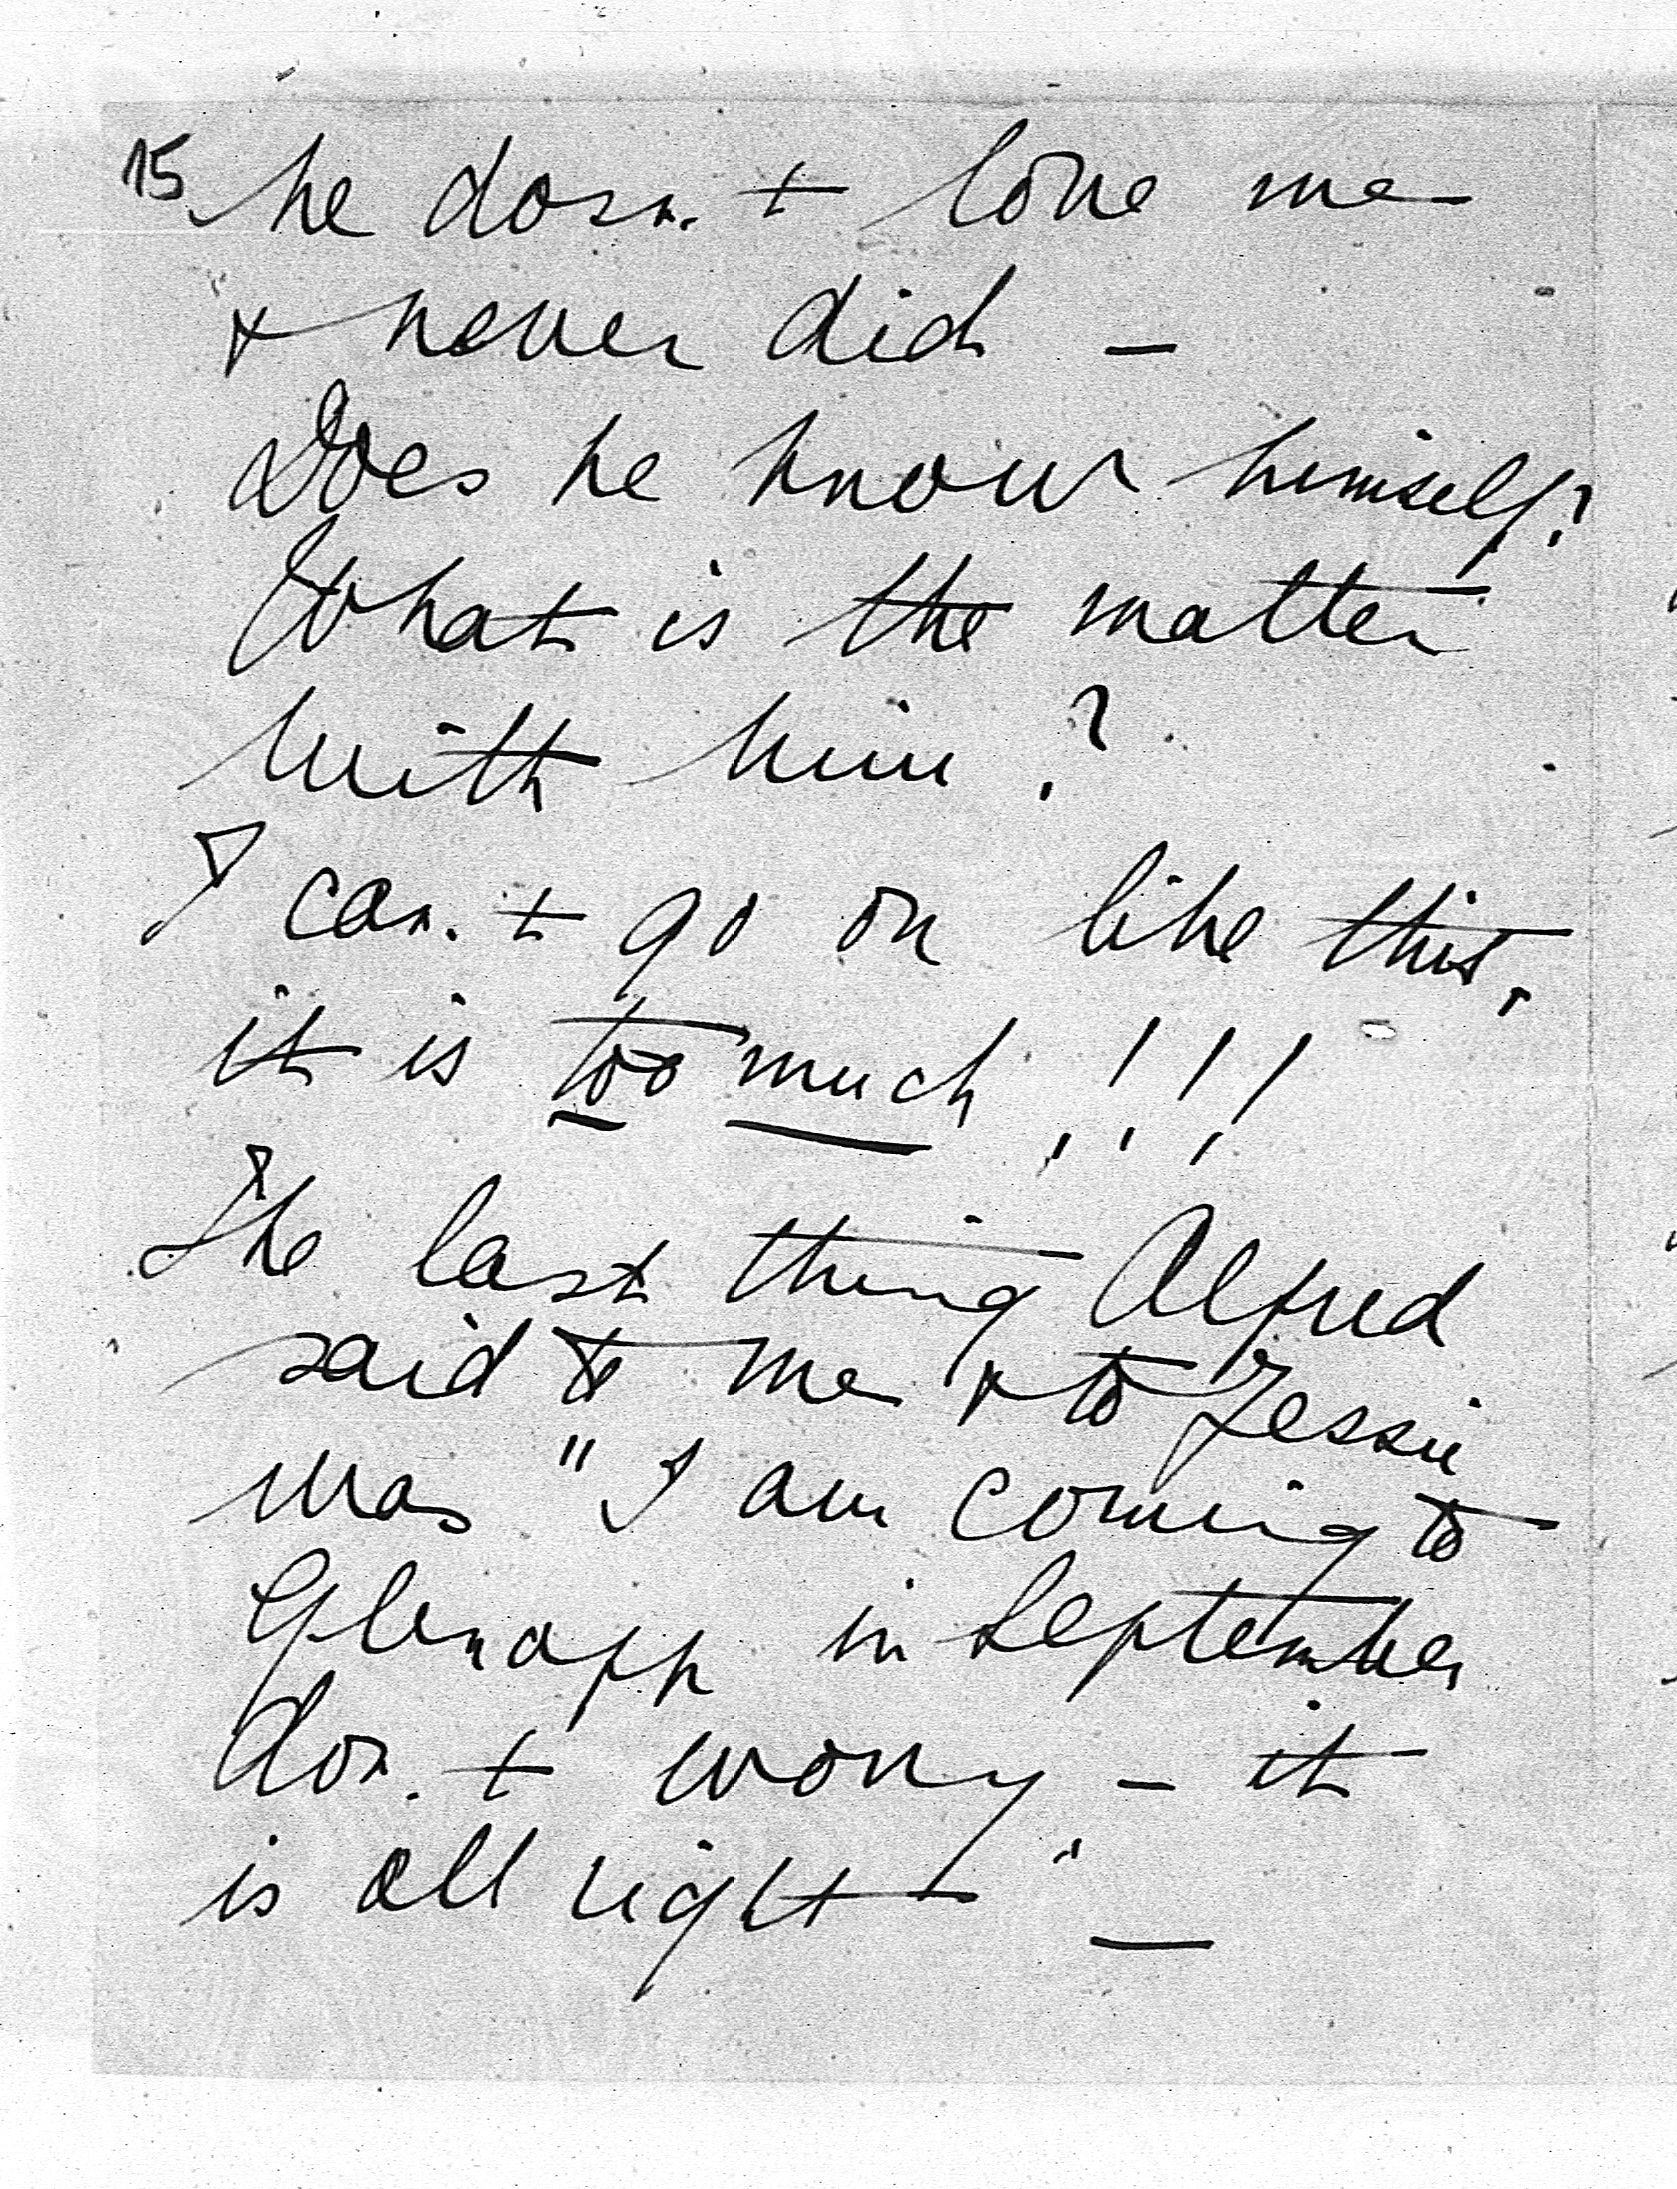 15 he dosn.t love me -
& never did -
Does he know himself?
What is the matter
with him?
I can.t go on like this,
it is too much !!!
The last thing Alfred
said to me & to Jessie
was "I am coming to
Glenapp in September
don.t worry - it
is all right" -